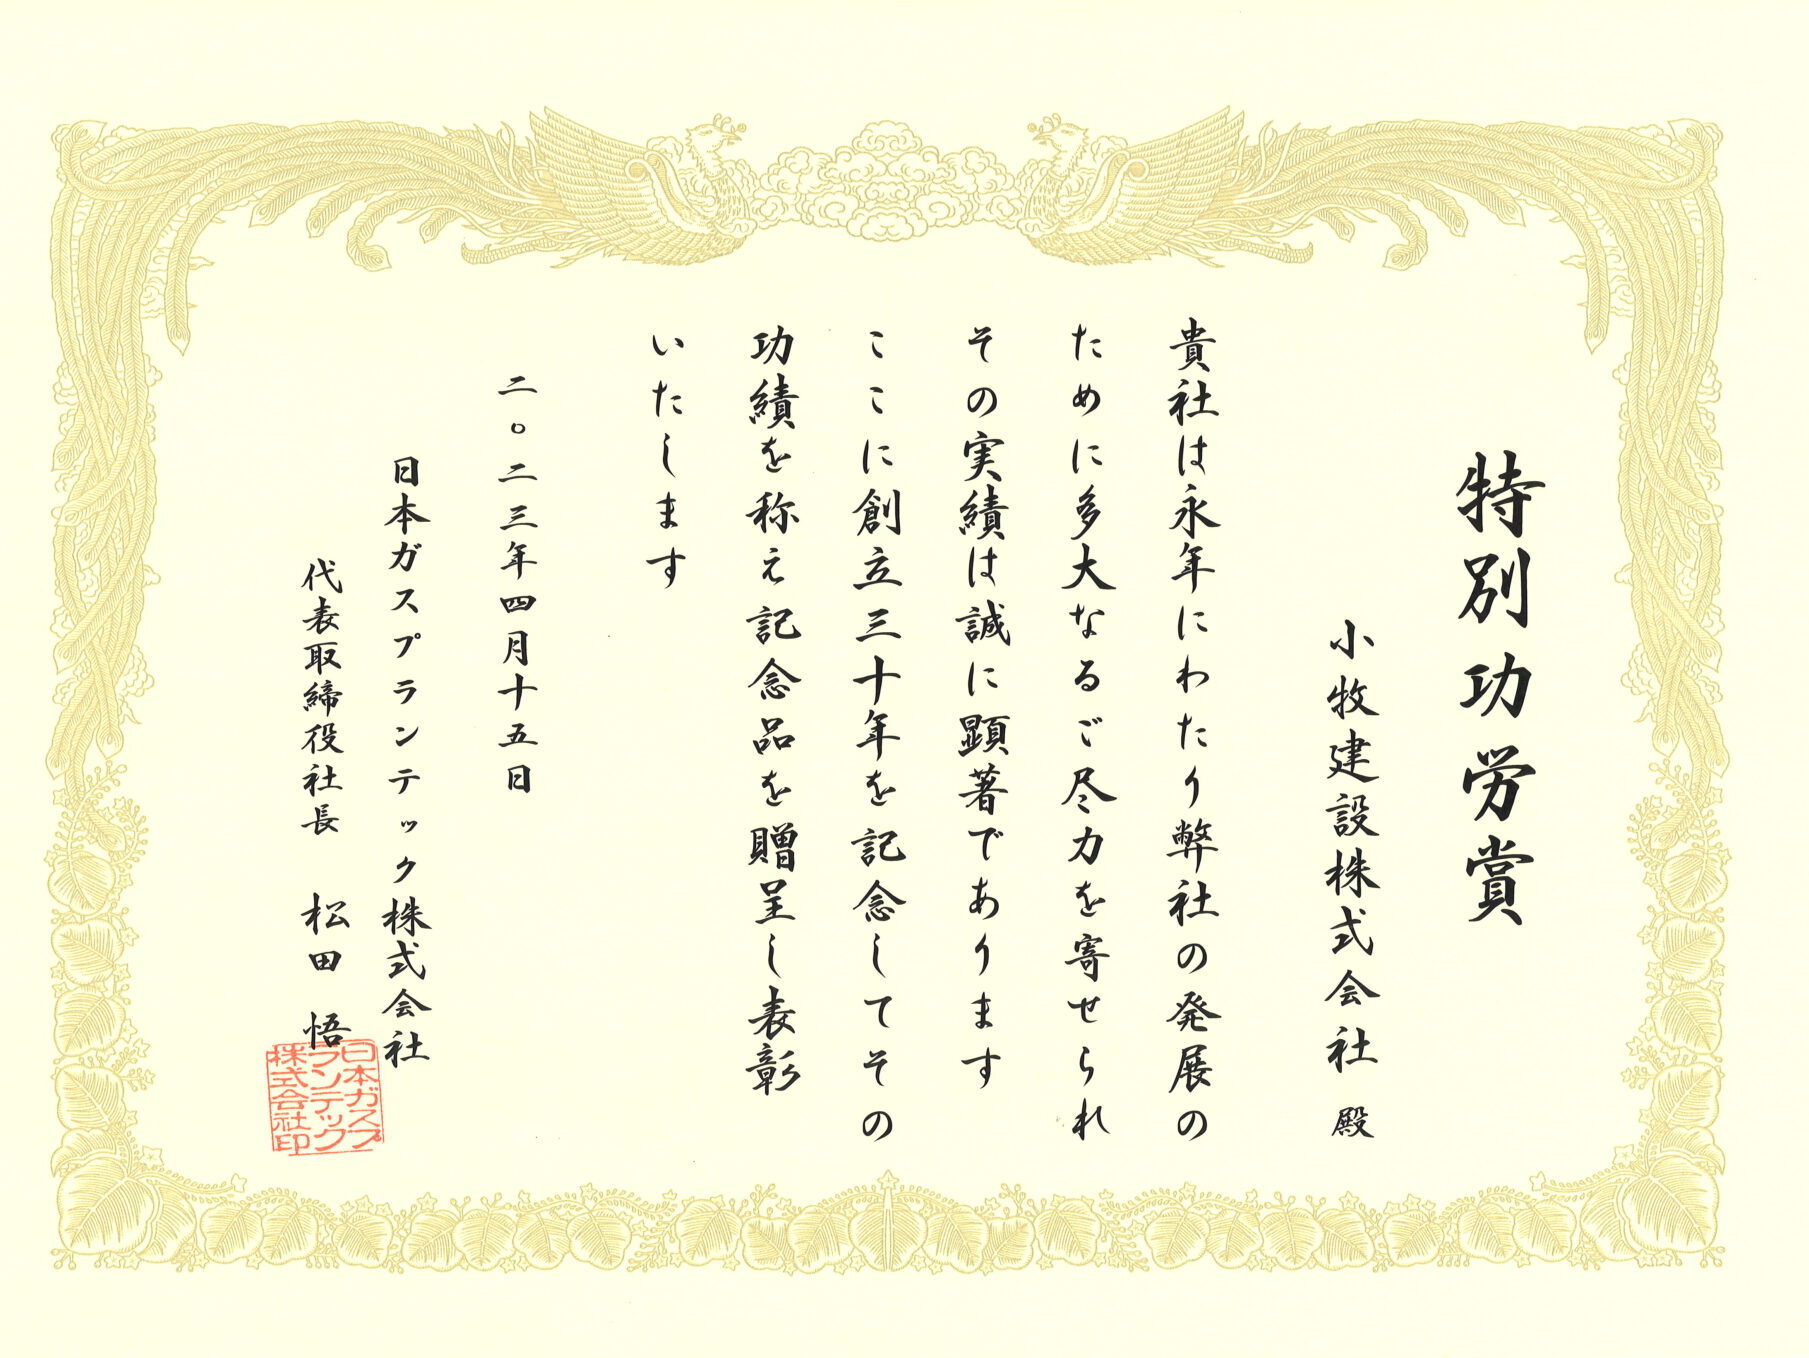 特別功労賞
小牧建設株式会社 殿
貴社は永年にわたり弊社の発展の
ために多大なるご尽力を寄せられ
その実績は誠に顕著であります
ここに創立三十年を記念してその
功績を称え記念品を贈呈し表彰
いたします
二〇二三年四月十五日
日本ガスプランテック株式会社
代表取締役社長 松田 悟
日本ガスプ
ランテック
株式会社印